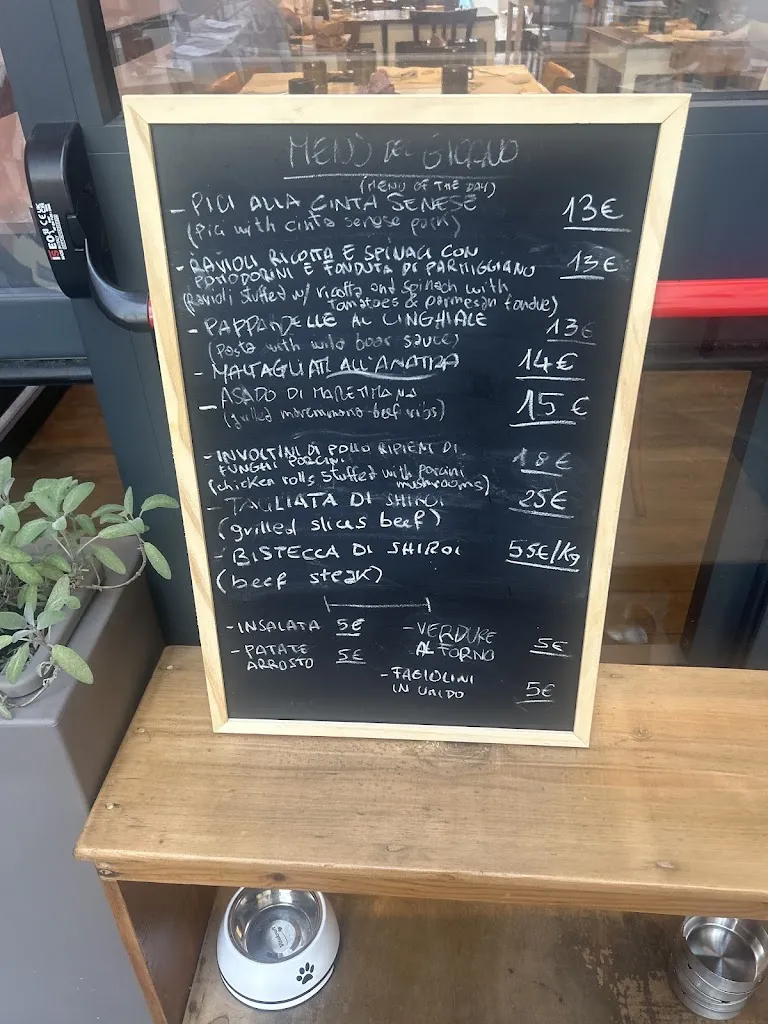 MENÙ DEL GIORNO
(MENU OF THE DAY)
- PICI ALLA CINTA SENESE 13€
(Pici with cinta senese pork)
- RAVIOLI RICOTTA E SPINACI CON
POMODORINI E FONDUTA DI PARMIGGIANO 13€
(Ravioli stuffed w/ ricotta and spinach with
tomatoes & parmesan fondue)
- PAPPARDELLE AL CINGHIALE 13€
(pasta with wild boar sauce)
- MALTAGLIATI ALL'ANATRA 14€
- ASADO DI MAREMMANA 15€
(grilled maremmana beef ribs)
- INVOLTINI DI POLLO RIPIENI DI
FUNGHI PORCINI 18€
(chicken rolls stuffed with porcini
mushrooms)
- TAGLIATA DI SHIROI 25€
(grilled slices beef)
- BISTECCA DI SHIROI 55€/Kg
(beef steak)
- INSALATA 5€
- PATATE
ARROSTO 5€
- VERDURE
AL FORNO 5€
- FAGIOLINI
IN UMIDO 5€
ISEO